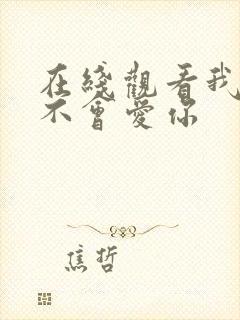 在綫觀看我
不會愛你
焦哲